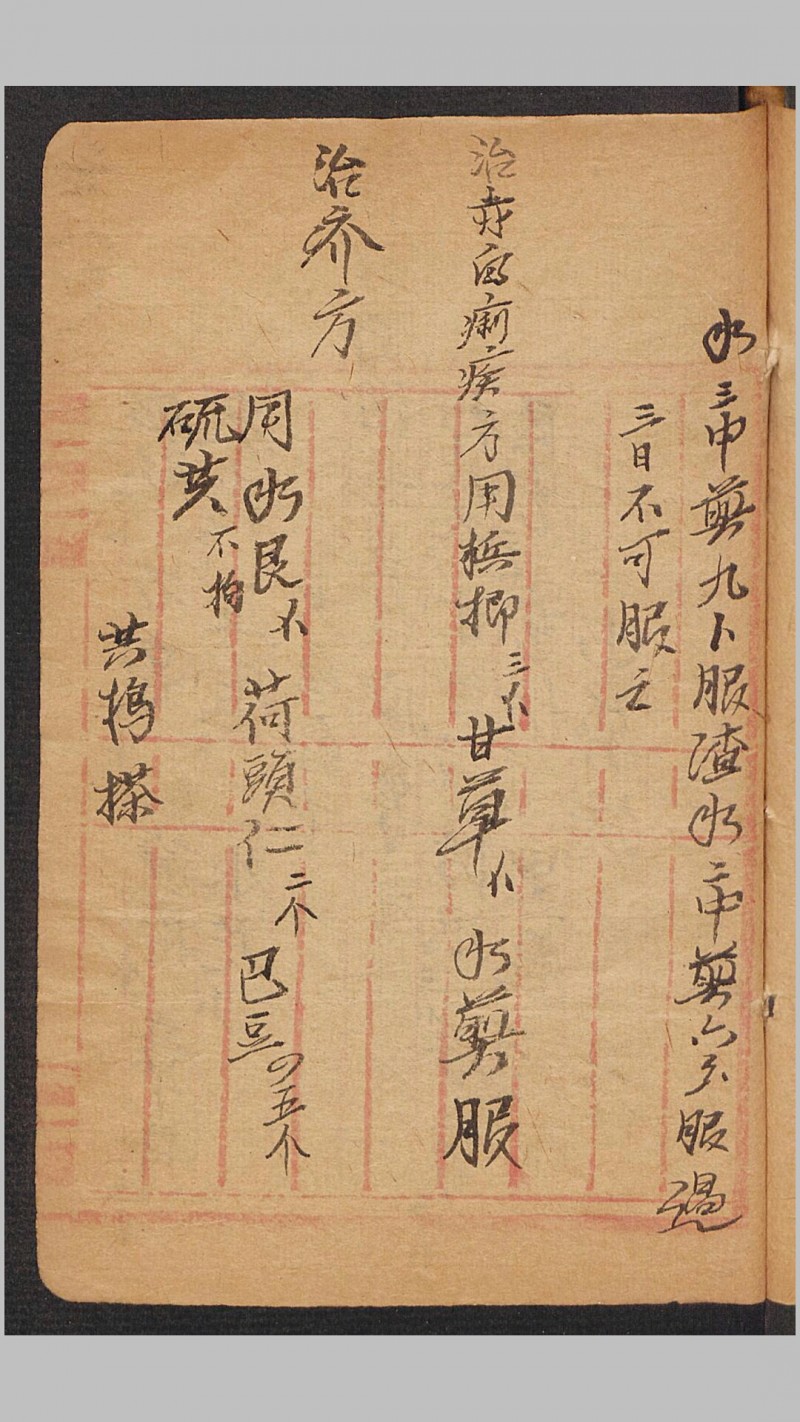 水三中煎九卜服渣水二中煎六分服過
三日不可服之
治赤白痢疾方用梹榔三 甘草 水煎服
治疥方
同水艮 荷頭仁二个巴豆四五个
硫共不拘
共搗搽